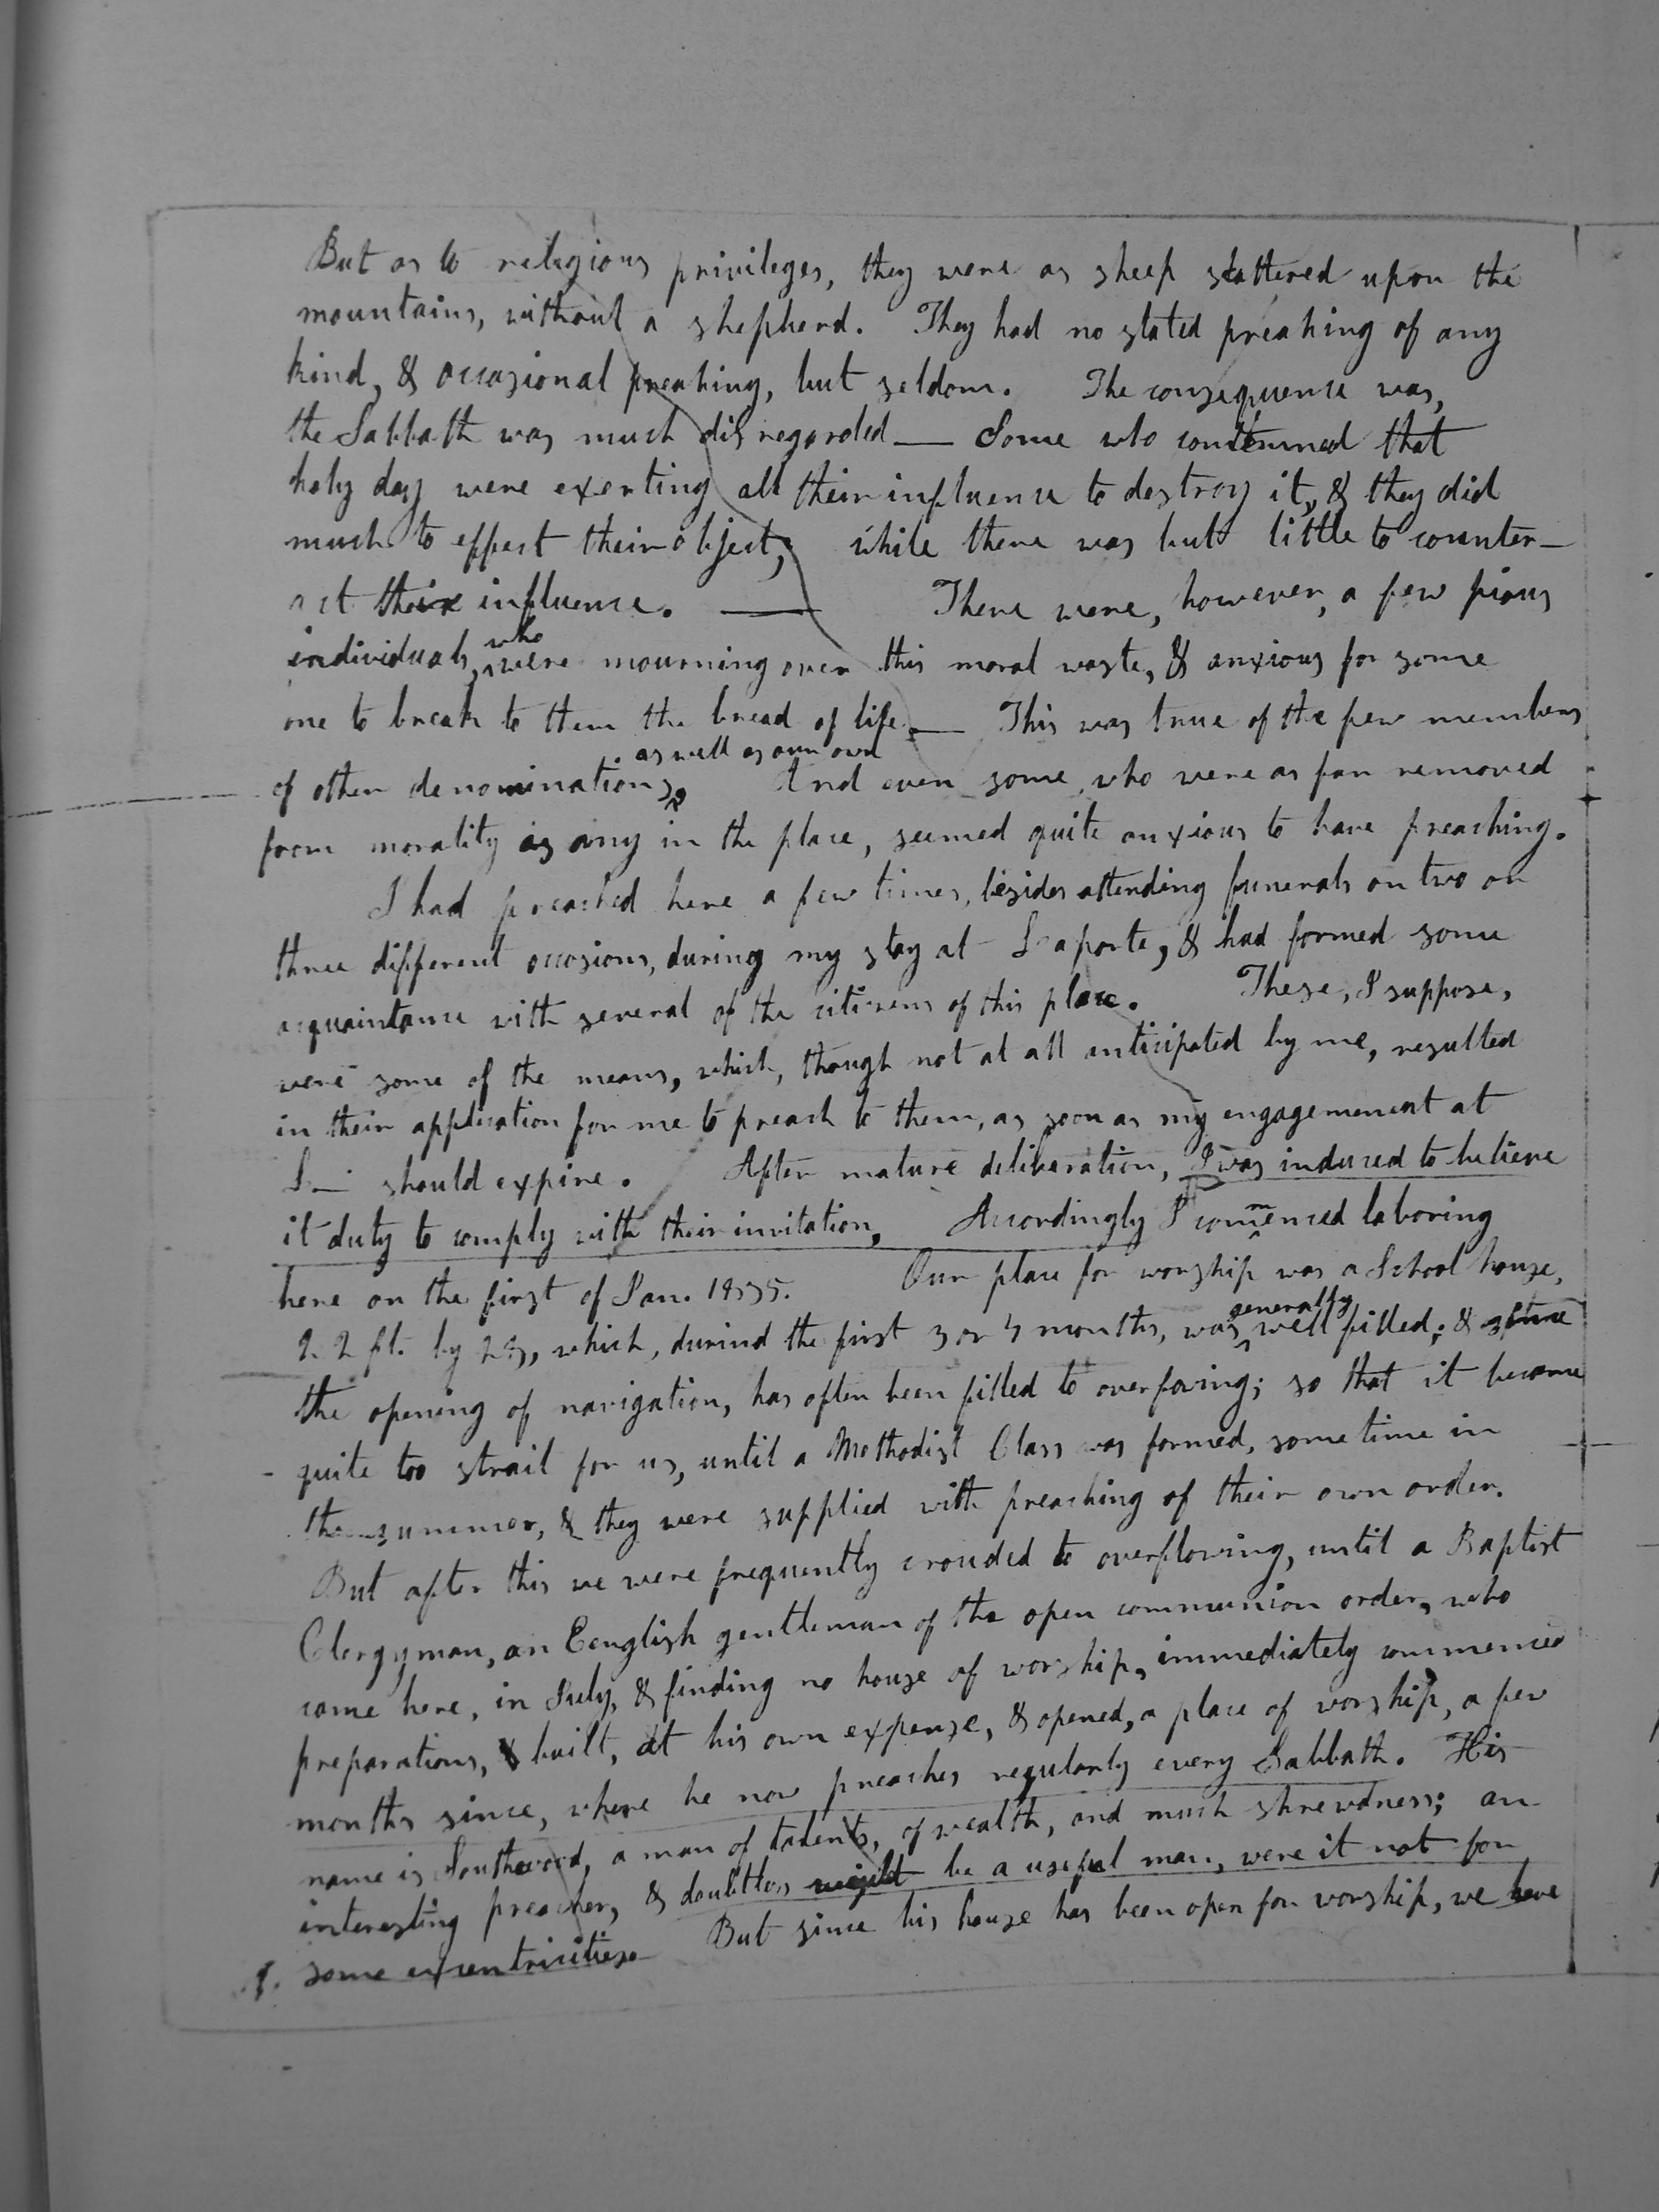 But as to religious privileges, they were as sheep scattered upon the
mountains, without a shepherd. They had no stated preaching of any
kind, & occasional preaching, but seldom. The consequence was,
the Sabbath was much disregarded — Some who contemned that
holy day were exerting all their influence to destroy it, & they did
much to effect their object, while there was but little to counter-
act their influence. — There were, however, a few pious
individuals, who were mourning over this moral waste, & anxious for some
one to break to them the bread of life — This was true of the few members
of other denominations, as well as our own. And even some, who were as far removed
from morality as any in the place, seemed quite anxious to have preaching.
I had preached here a few times, besides attending funerals on two or
three different occasions, during my stay at Laporte, & had formed some
acquaintance with several of the citizens of this place. These, I suppose,
were some of the means, which, though not at all anticipated by me, resulted
in their application for me to preach to them, as soon as my engagement at
L— should expire. After mature deliberation, I was induced to believe
it duty to comply with their invitation, Accordingly I commenced laboring
here on the first of Jan. 1835. Our place for worship was a School house,
22 ft. by 28, which, durind the first 3 or 4 months, was generally well filled; & since
the opening of navigation, has often been filled to overfowing; so that it became
quite too strait for us, until a Methodist Class was formed, sometime in
the summer, & they were supplied with preaching of their own order.
But after this we were frequently crouded to overflowing, until a Baptist
Clergyman, an Eenglish gentleman of the open communion order, who
came here, in July, & finding no house of worship, immediately commenced
preparations, & built, at his own expense, & opened, a place of worship, a few
months since, where he now preaches regularly every Sabbath. His
name is Southwood, a man of talents, of wealth, and much shrewdness; an
interesting preacher, & doubtless might be a useful man, were it not for
some excentricities. But since his house has been open for worship, we have